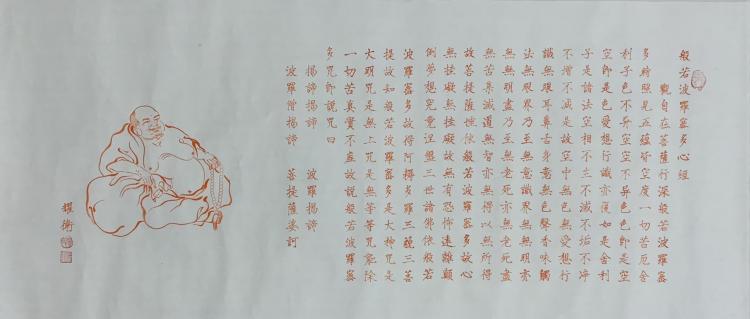 般若波羅蜜多心經
觀自在菩薩行深般若波羅蜜
多時照見五蘊皆空度一切苦厄舍
利子色不異空空不異色色即是空
空即是色受想行識亦復如是舍利
子是諸法空相不生不滅不垢不淨
不增不減是故空中無色無受想行
識無眼耳鼻舌身意無色聲香味觸
法無眼界乃至無意識界無無明亦
無無明盡乃至無老死亦無老死盡
無苦集滅道無智亦無得以無所得
故菩提薩埵依般若波羅蜜多故心
無挂礙無挂礙故無有恐怖遠離顛
倒夢想究竟涅盤三世諸佛依般若
波羅蜜多故得阿耨多羅三藐三菩
提故知般若波羅蜜多是大神咒是
大明咒是無上咒是無等等咒能除
一切苦真實不虛故說般若波羅蜜
多咒即說咒曰
揭諦揭諦 波羅揭諦
波羅僧揭諦 菩提薩婆訶